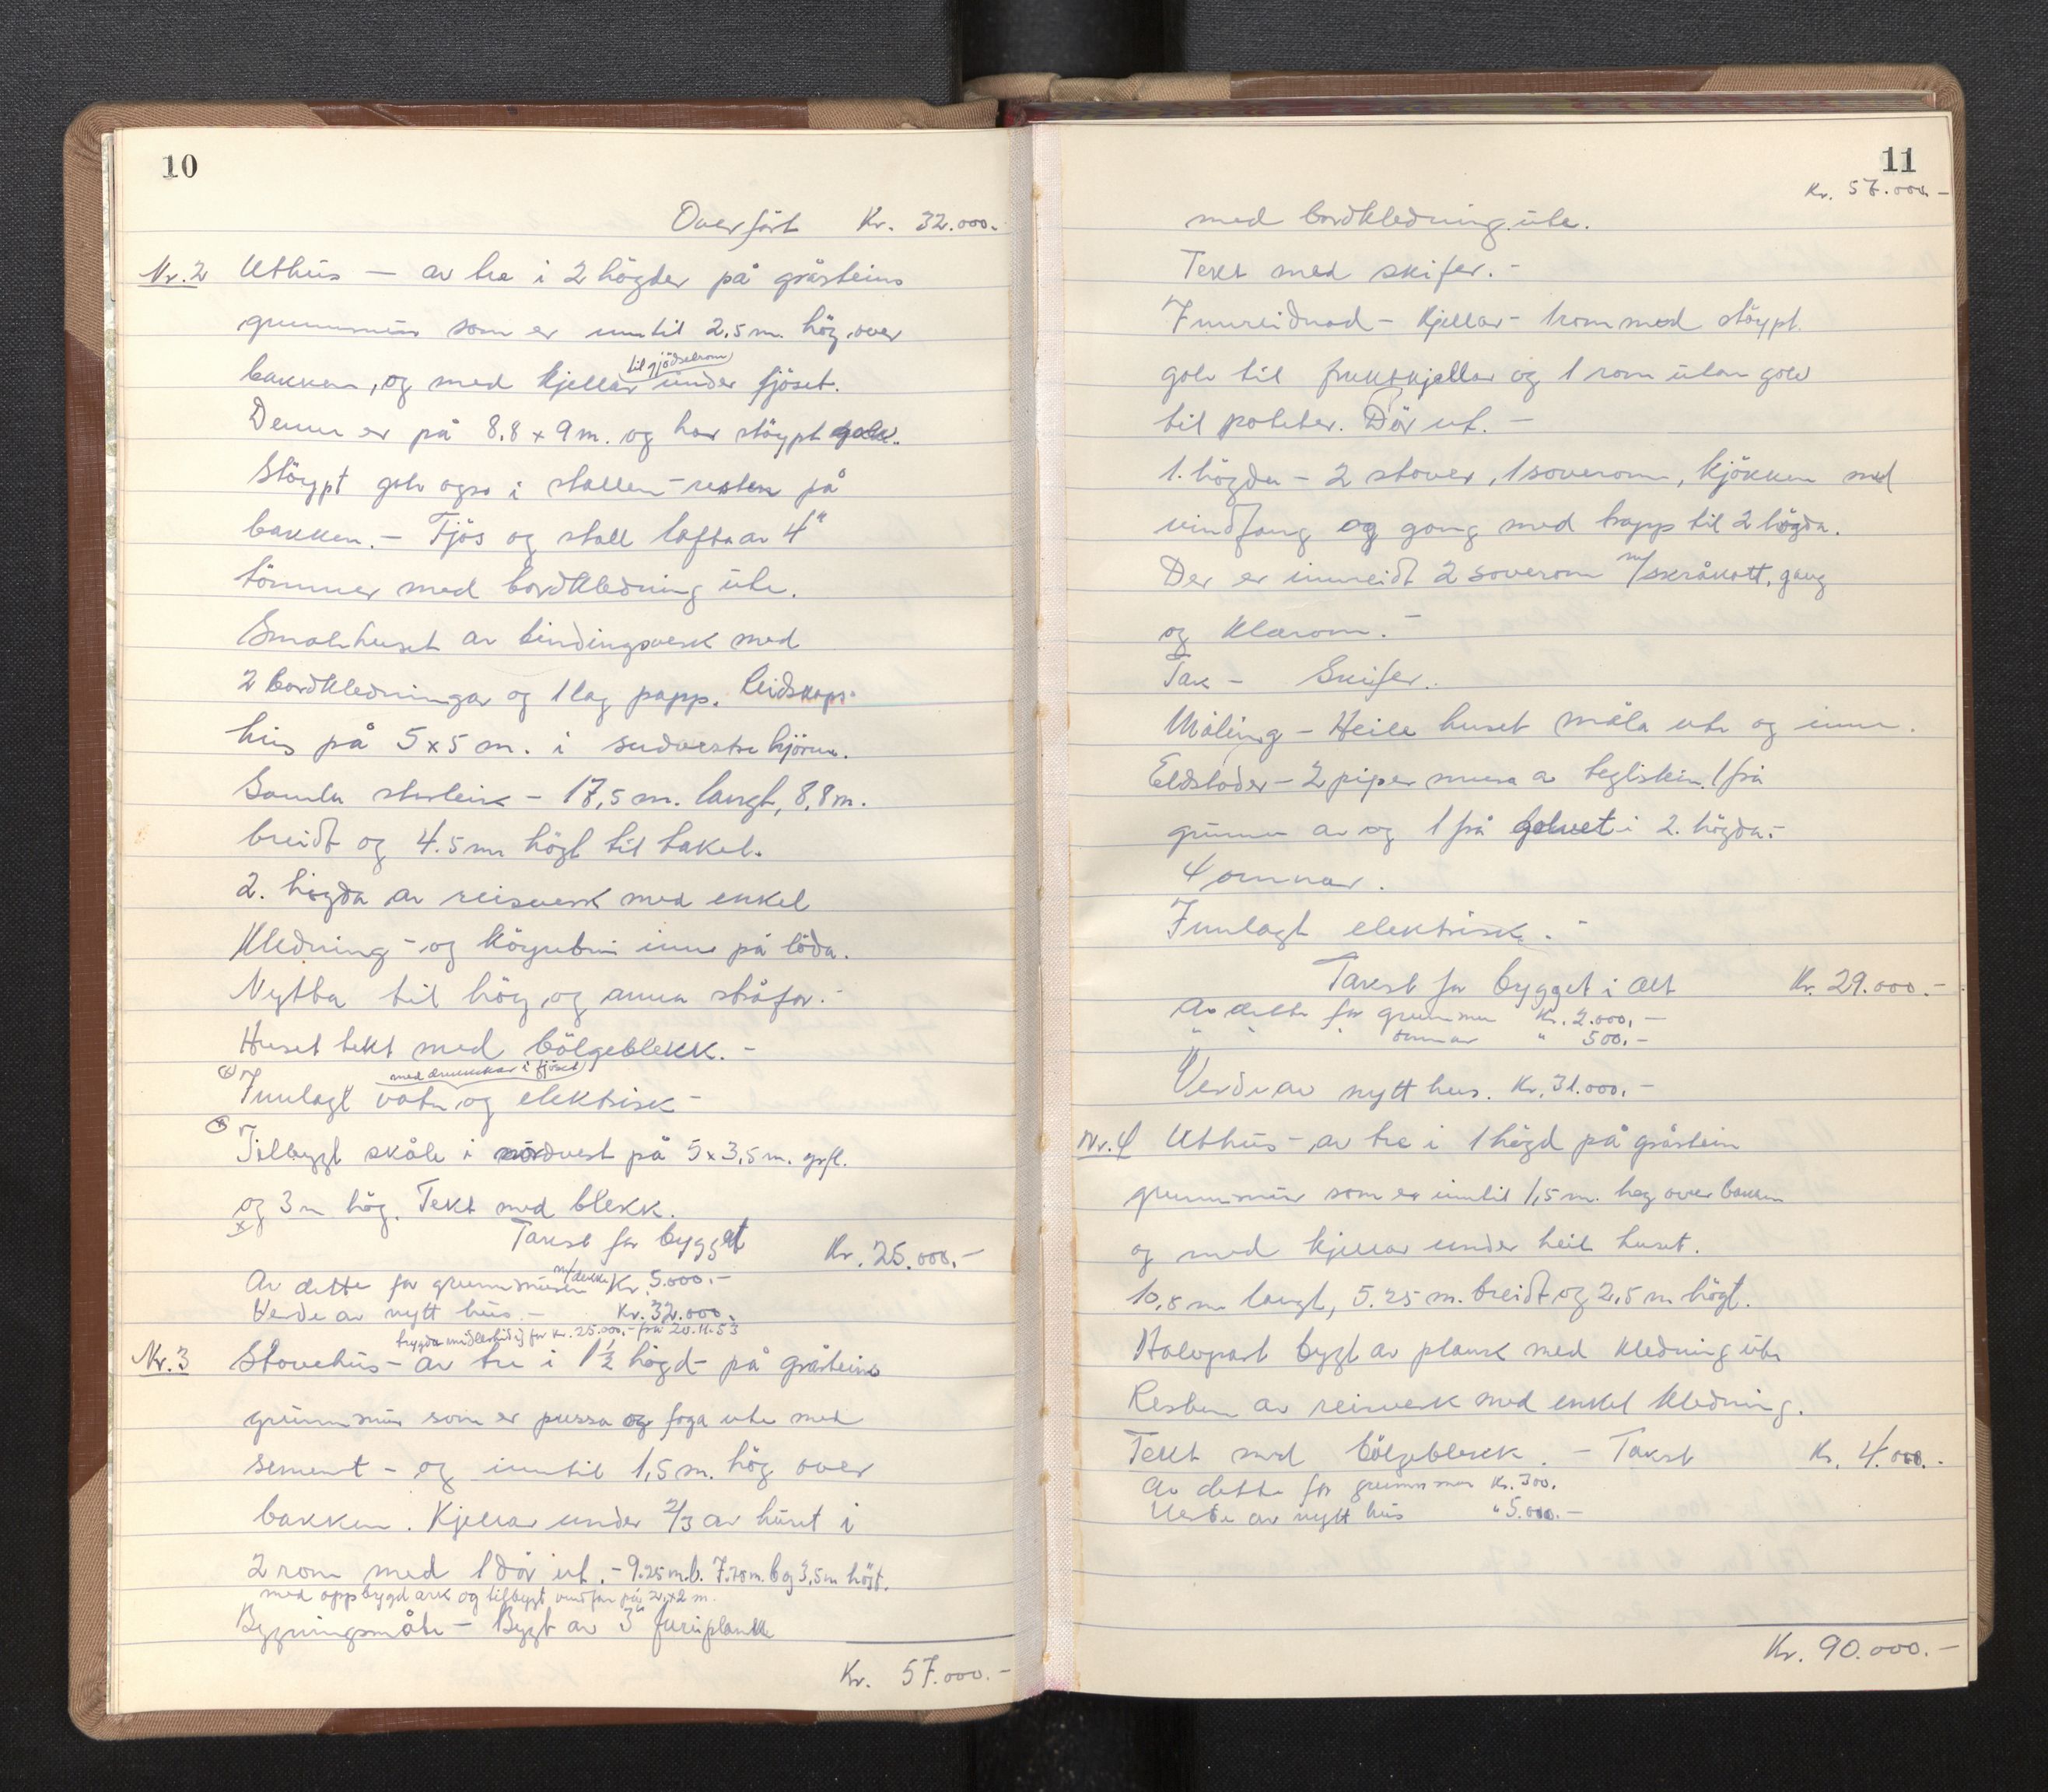 10
Overført Kr. 32.000.-
Nr. 2 Uthus — av tre i 2 högder på gråsteins
grunnmur som er inntil 2.5 m. hög over
til gjödselrom
bakken, og med kjellar under fjöset.
Denne er på 8.8 x 9 m. og har støypt golv.
Stöypt golv også i stallen - resten på
bakken. - Fjös og stall lafta av 4"
tömmer med bordkledning ute.
Smalehuset av bindingsverk med
2 bordkledningar og 1 lag papp. Reidskaps-
hus på 5 x 5 m. i sudvestre hjörne.
Samla storleik - 17,5 m. langt, 8,8 m.
breidt og 4.5 m högt til taket.
2. högda av reisverk med enkel
kledning - og köyrebru inn på löda.
Nytta til höy og anna stråfor. -
Huset tekt med bölgeblekk. -
med drikkekar i fjöset
Innlagt vatn og elektrisk -
Tilbygt skåle i nordvest på 5 x 3,5 m. grfl.
og 3 m hög. Tekt med blekk.
Takst for bygget Kr. 25.000.-
Av dette for grunnmuren m/dekke Kr. 5.000.-
Verde av nytt hus - Kr. 32.000.
trygda midlertidig for kr. 25.000.- frå 20.11.53
Nr. 3 Stovehus - av tre i 1 1/2 högd - på gråsteins
grunnmur som er pussa og foga ute med
sement - og inntil 1,5 m. hög over
bakken. Kjellar under 2/3 av huset i
2 rom med 1 dör ut. - 9.25 m. l. 7.20 m. b og 3,5 m högt.
med oppbygd ark og tilbygt vindfang på 2 x 2 m.
Bygningsmåte - Bygt av 3" furuplank
Kr. 57.000.-
11
Kr. 57.000.-
med bordkledning ute.
Tekt med skifer. -
Innreidnad - Kjellar - 1 rom med stöypt
golv til fruktkjellar og 1 rom utan golv
til poteter. Dör ut. -
1. högda - 2 stover, 1 soverom, kjökken med
vindfang og gang med trapp til 2 högda.
Der er innreidt 2 soverom m/skråkott, gang
og klerom. -
Tak - Skifer.
Måling - Heile huset måla ute og inne.
Eldstader - 2 piper mura av teglstein. 1 frå
grunnen av og 1 frå golvet i 2. högda. -
4 omnar.
Innlagt elektrisk. -
Takst for bygget i alt Kr. 29.000.-
Av dette for grunnmur Kr. 2.000,-
" " " omnar " 500.-
Verde av nytt hus. Kr. 31.000.-
Nr. 4 Uthus - av tre i 1 högd på gråstein
grunnmur som er inntil 1,5 m. høg over bakken
og med kjellar under heile huset.
10,8 m langt, 5.25 m. breidt og 2,5 m högt.
Halvpart bygt av plank med kledning ute
Resten av reisverk med enkel kledning.
Tekt med bölgeblekk. - Takst Kr. 4.000.-
Av dette for grunnmur Kr. 300.
Verde av nytt hus " 5.000.-
Kr. 90.000.-